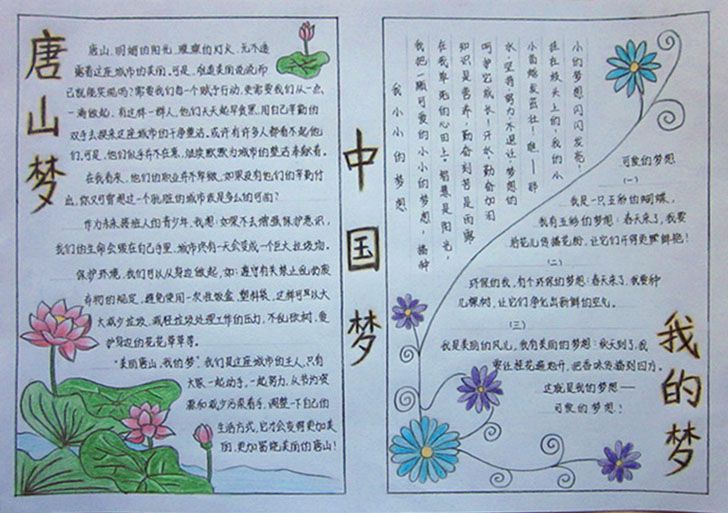 唐山梦
唐山,明媚的阳光,璀璨的灯火,无不透
着这座城市的美丽。可是,难道美丽说说而
已就能实现吗?需要我们每个赋予行动,更需要我们从一点
一滴做起,有这样一群人,他们天天起早贪黑,用自己辛勤的
双手去换来这座城市的干净整洁,或许有许多人都看不起他
们,可是,他们似乎并不在意,继续默默为城市的整洁奉献着。
在我看来,他们的职业并不卑微,如果没有他们的辛勤付
出,你又可曾想过一个肮脏的城市或是多么的可怕?
作为未来接班人的青少年,我想:如果不去增强保护意识,
我们的生命会毁在自己手里,城市终有一天会变成一个巨大垃圾场。
保护环境,我们可以从身边做起,如:遵守有关禁止乱扔废
弃物的规定,避免使用一次性饭盒、塑料袋,这样可以大
大减少垃圾,减轻垃圾处理工作的压力,不乱砍树,爱
护身边的花花草草等。
“美丽唐山,我的梦”,我们是这座城市的主人,只有
大家一起动手,一起努力,从节约资
源和减少污染着手,调整一下自己的
生活方式,它才会变得更加美
丽,更加富饶美丽的唐山!
中国梦
小的梦想,闪闪发亮!
挂在枝头上的!我的小
小苗越发茁壮!瞧——那
水,坚持努力不退让,梦想的
呵护它成长!汗水,勤奋如雨
知识是营养,勤奋刻苦是雨露
在我单纯的心田上,智慧是阳光,
我把一颗可爱的小小的梦想,播种
我小小的梦想
可爱的梦想
(一)
我是一只五彩的蝴蝶,
我有五彩的梦想:春天来了,我要
给花儿传播花粉,让它们开得更鲜艳!
(二)
环保的我,有个环保的梦想:春天来了,我要种
几棵树,让它们净化出新鲜的空气。
(三)
我是美丽的风儿,我有美丽的梦想:秋天到了,我
要让桂花遍地开,把香味传播到四方。
这就是我的梦想——
可爱的梦想!
我的梦